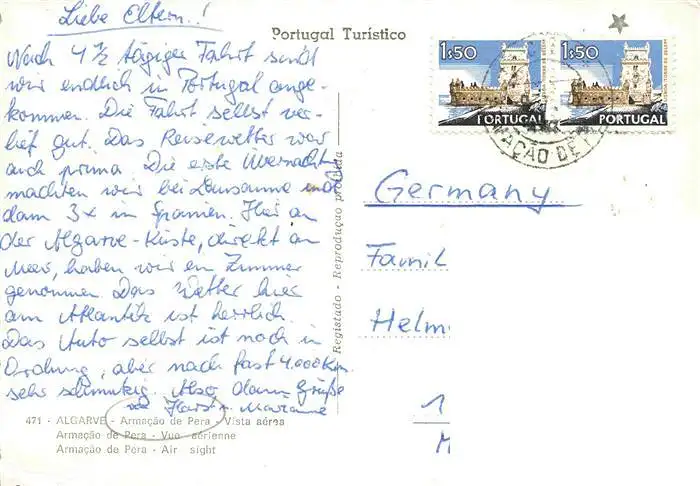 Liebe Eltern..!
Nach 4 ½ tägiger Fahrt sind
wir endlich in Portugal ange-
kommen. Die Fahrt selbst ver-
lief gut. Das Reisewetter war
auch prima. Die erste Übernachtg
machten wir bei Lausanne und
dann 3x in Spanien. Hier an
der Algarve-Küste, direkt an
Meer, haben wir ein Zimmer
genommen. Das Wetter hier
am Atlantik ist herrlich.
Das Auto selbst ist noch in
Ordnung, aber nach fast 4.000 Km.
sehr schmutzig. Also dann Grüße
Horst + Marianne
471 - ALGARVE - Armação de Pera - Vista aérea
Armação de Pera - Vue aérienne
Armação de Pera - Air sight
Portugal Turístico
Registado - Reprodução proibida
1$50
PORTUGAL
1$50
PORTUGAL
MAÇÃO DE
Germany
Famil
Helm
1